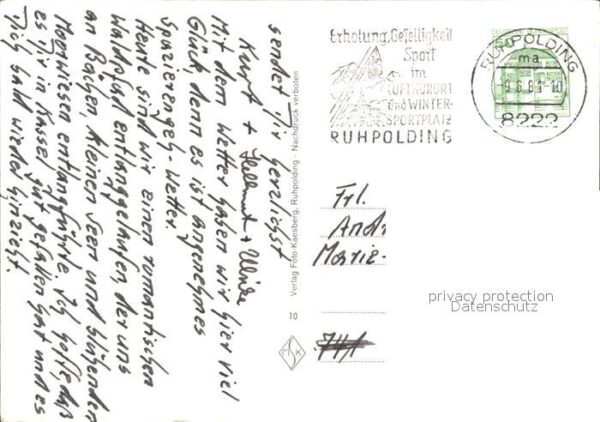 sendet Dir herzlichst
Kurt + Hellmut + Ulrike
Mit dem Wetter haben wir hier viel
Glück, denn es ist angenehmes
Spaziergeh-Wetter.
Heute sind wir einen romantischen
Waldpfad entlanggelaufen, der uns
an Bächen, kleinen Seen und blühenden
Moorwiesen entlangführte. Ich hoffe, daß
es Dir in Kassel gut gefallen hat und es
Dich bald wieder hinzieht.
Verlag Foto-Kaesberg, Ruhpolding - Nachdruck verboten
10
Erholung, Geselligkeit
Sport
im
LUFTKURORT
und WINTER-
SPORTPLATZ
RUHPOLDING
RUHPOLDING
ma
8222
Frl.
Andr
Marie-
privacy protection
Datenschutz